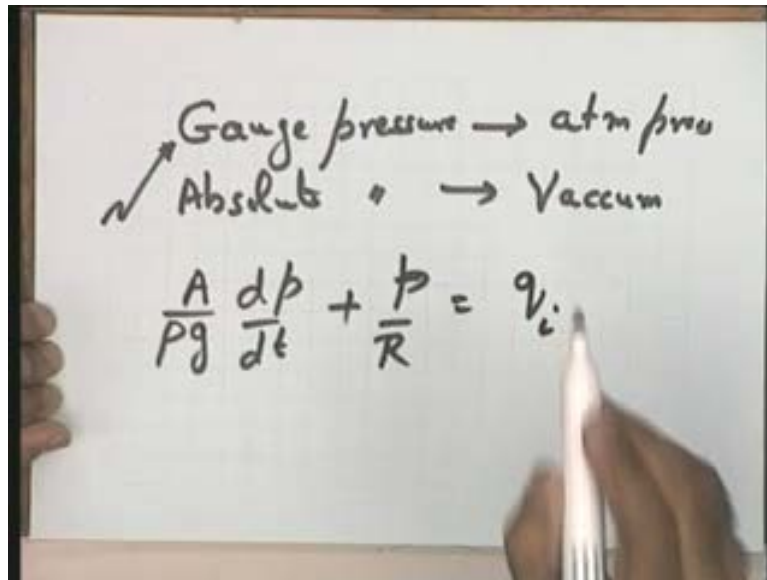 Gauge pressure → atm pres
Absolute " → Vaccum
A/ρg dp/dt + p/R = qi